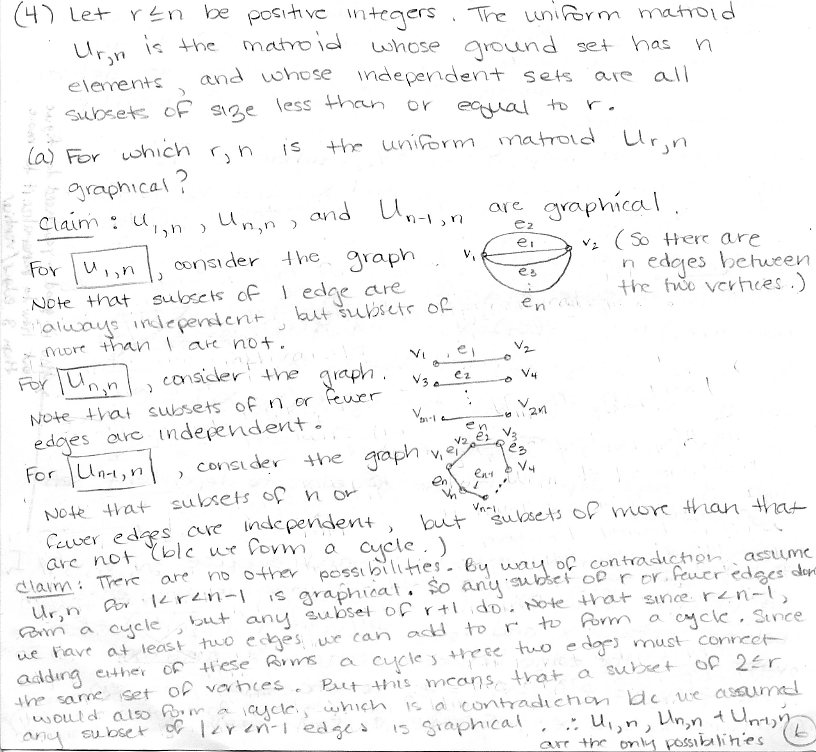 (4) Let r≤n be positive integers. The uniform matroid
U_{r,n} is the matroid whose ground set has n
elements, and whose independent sets are all
subsets of size less than or equal to r.
(a) For which r,n is the uniform matroid U_{r,n}
graphical?
Claim: U_{1,n}, U_{n,n}, and U_{n-1,n} are graphical.
For U_{1,n}, consider the graph
v₁ e₂ e₁ e₃ ⋮ eₙ v₂
(so there are
n edges between
the two vertices.)
Note that subsets of 1 edge are
always independent, but subsets of
more than 1 are not.
For U_{n,n}, consider the graph.
v₁ e₁ v₂
v₃ e₂ v₄
⋮
eₙ v₂ₙ
Note that subsets of n or fewer
edges are independent.
For U_{n-1,n}, consider the graph
v₁ e₁ v₂ e₂ v₃ e₃ v₄ eₙ₋₁ vₙ₋₁ vₙ eₙ
Note that subsets of n or
fewer edges are independent, but subsets of more than that
are not (b/c we form a cycle.)
Claim: There are no other possibilities. By way of contradiction assume
U_{r,n} for 1<r<n-1 is graphical. So any subset of r or fewer edges don't
form a cycle, but any subset of r+1 do. Note that since r<n-1,
we have at least two edges we can add to r to form a cycle. Since
adding either of these forms a cycle, these two edges must connect
the same set of vertices. But this means that a subset of 2≤r
would also form a cycle, which is a contradiction b/c we assumed
any subset of 1<r<n-1 edges is graphical. ∴ U_{1,n}, U_{n,n} + U_{n-1,n}
are the only possibilities